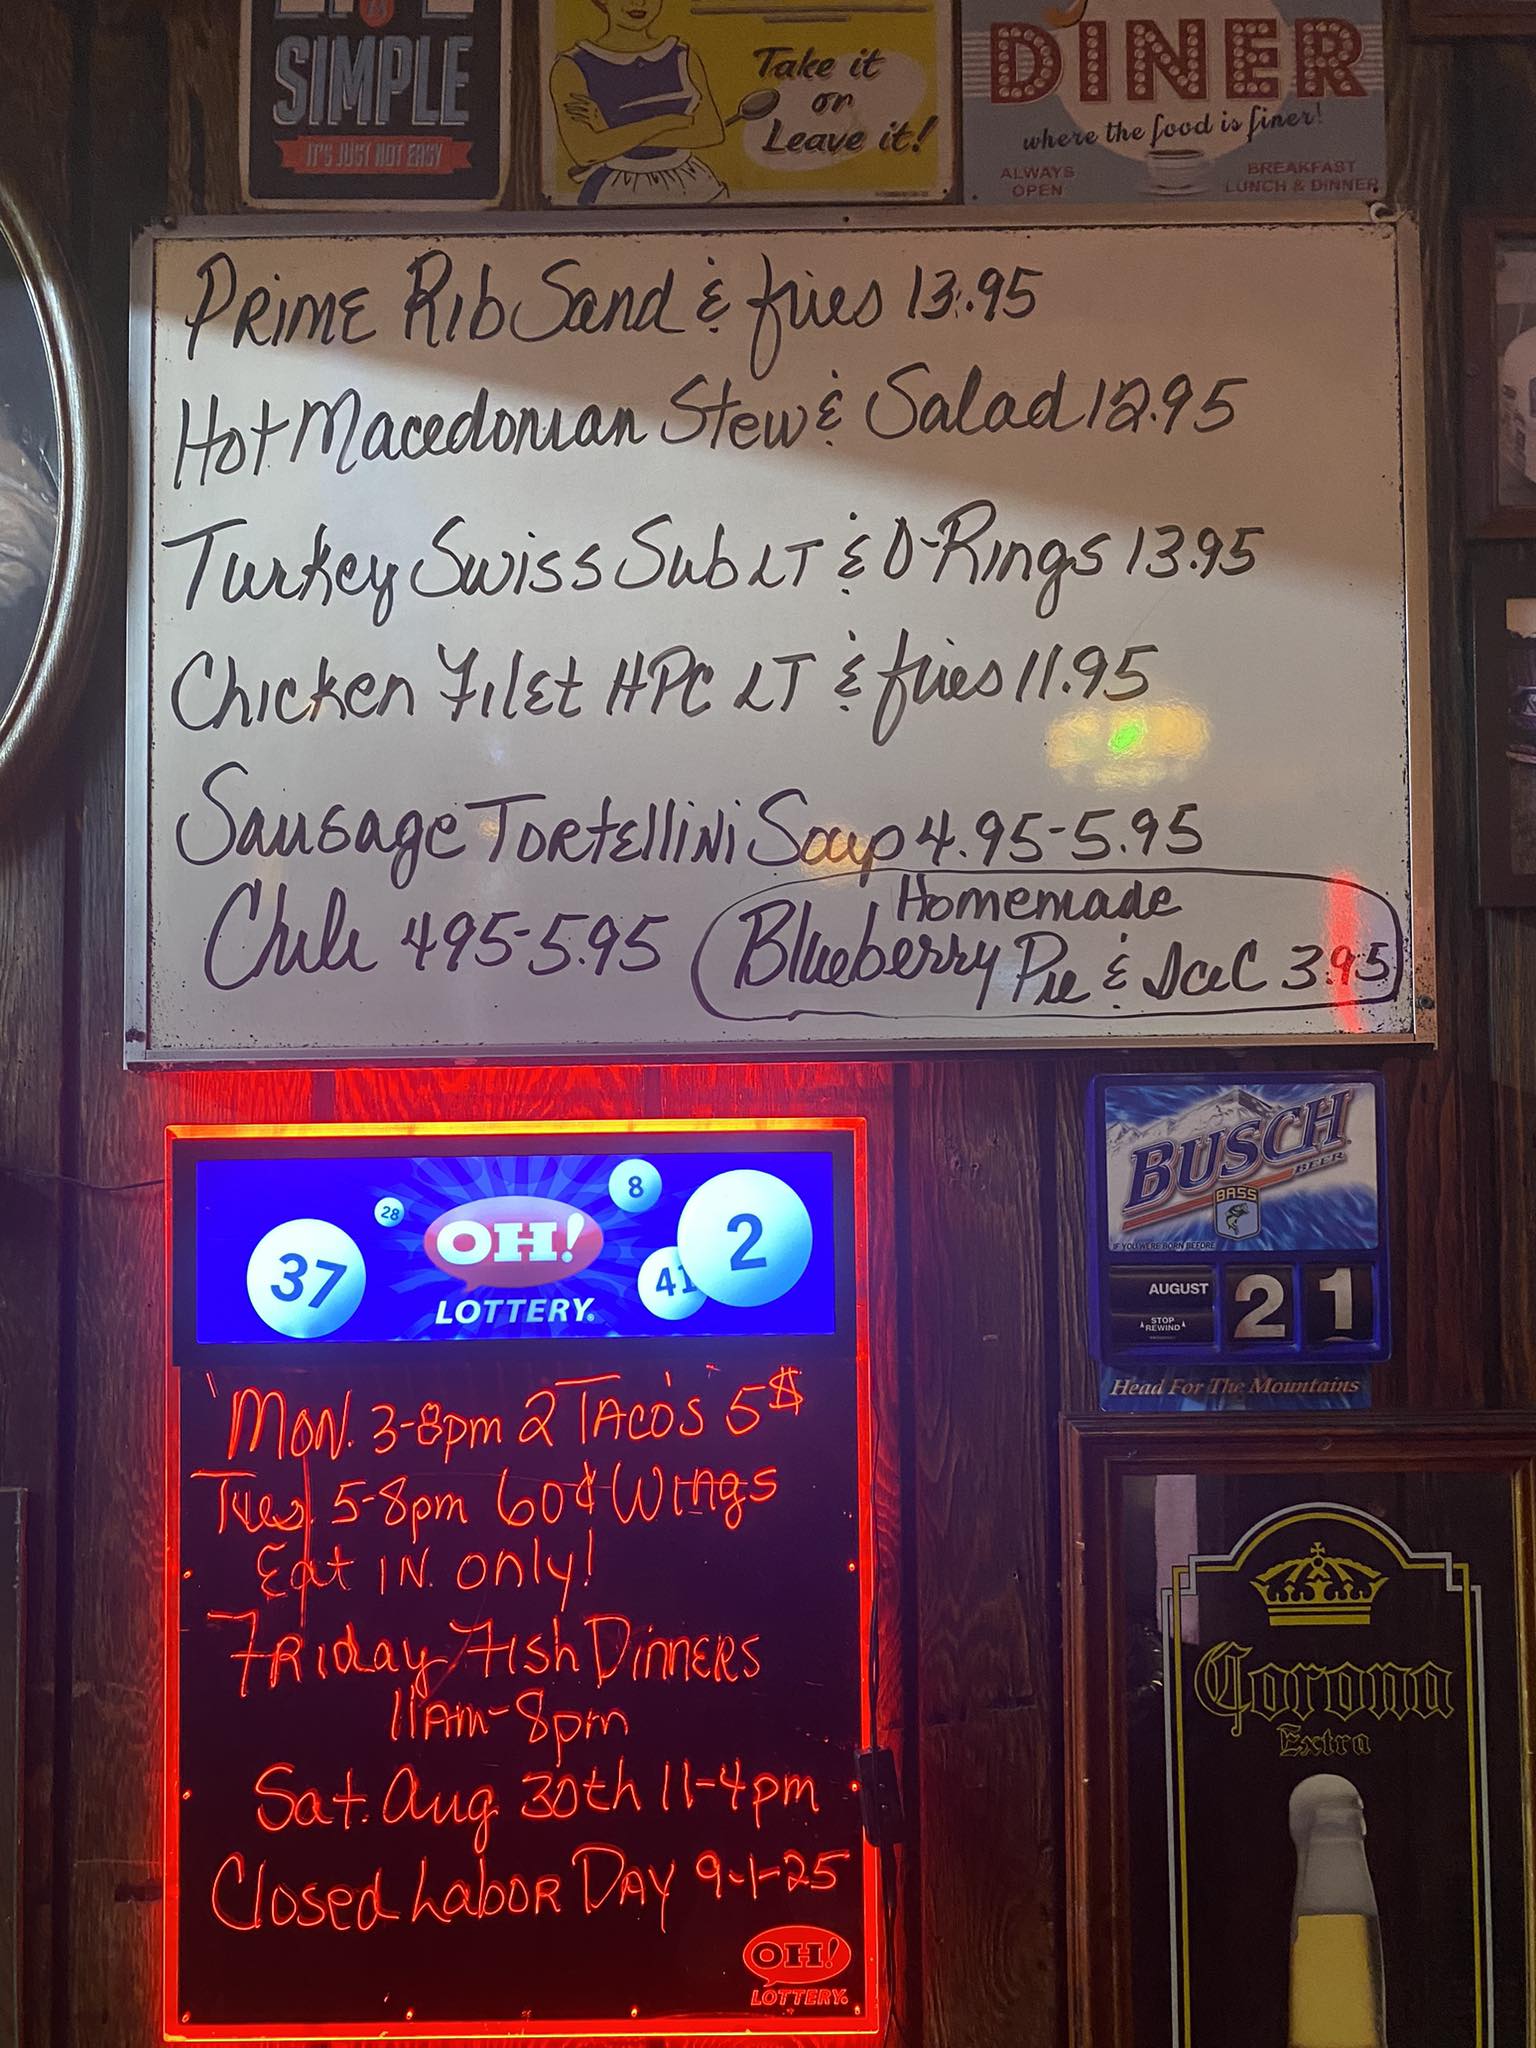 SIMPLE
IT'S JUST NOT EASY
Take it
or
Leave it!
DINER
where the food is finer!
ALWAYS
OPEN
BREAKFAST
LUNCH & DINNER
PRIME RIB Sand & fries 13.95
Hot Macedonian Stew & Salad 12.95
Turkey Swiss Sub LT & O-Rings 13.95
Chicken Filet HPC LT & fries 11.95
Sausage Tortellini Soup 4.95-5.95
Chili 495-5.95
Homemade
Blueberry Pie & Ice C 3.95
BUSCH
BEER
BASS
IF YOU WERE BORN BEFORE
AUGUST 21
STOP
REWIND
Head For The Mountains
37 28 8 41 2
OH!
LOTTERY.
Mon. 3-8pm 2 Taco's 5$
Tues 5-8pm 60¢ Wings
Eat IN only!
Friday Fish Dinners
11am-8pm
Sat. Aug 30th 11-4pm
Closed Labor Day 9-1-25
OH!
LOTTERY.
Corona
Extra